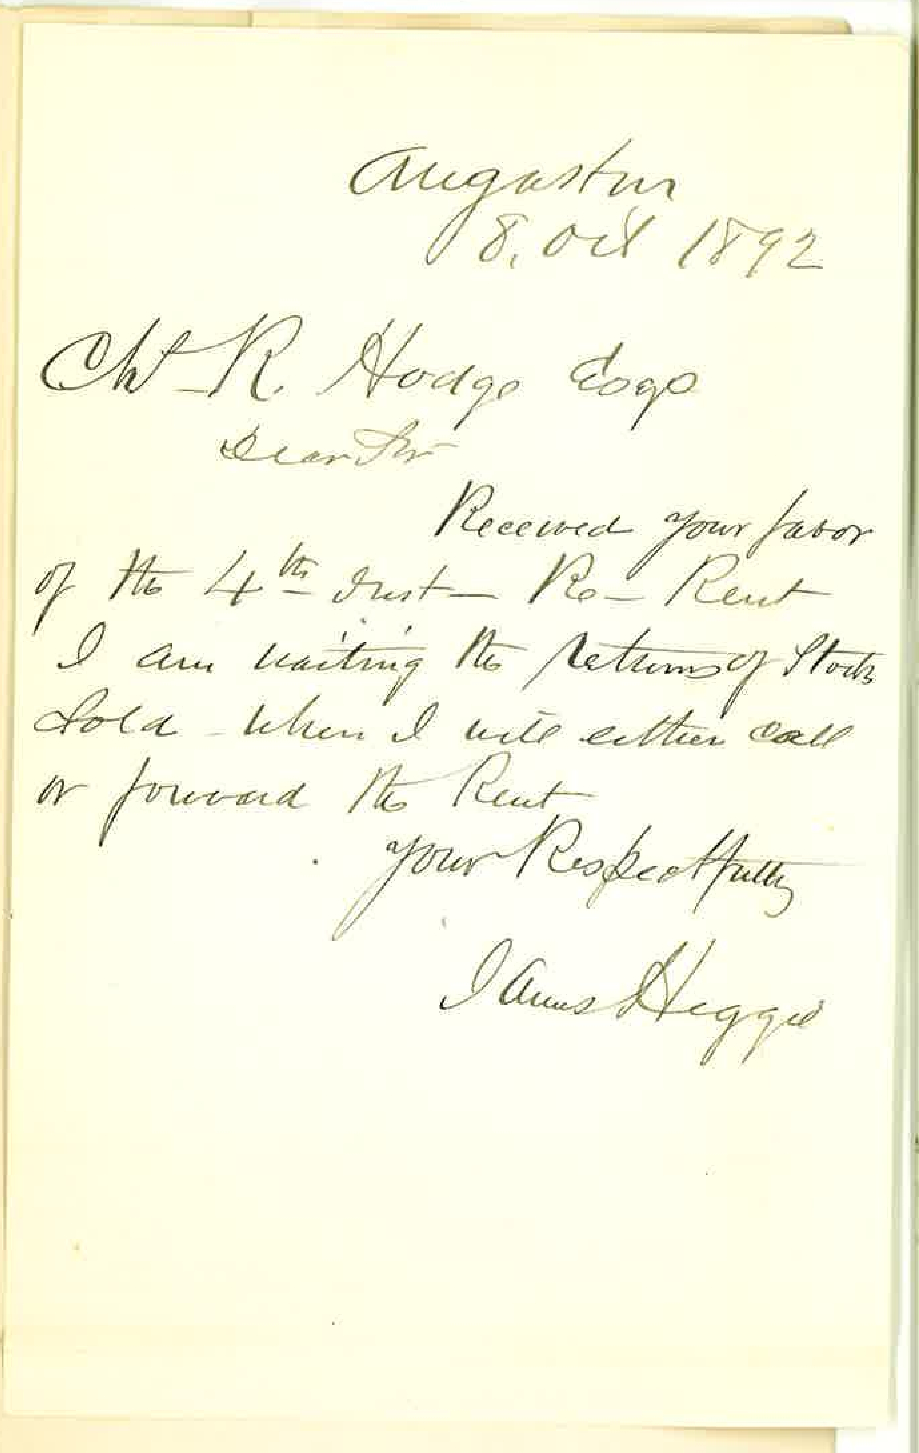 Angaston
8. Oct 1892
Chs R. Hodge Esqr
Dear Sir
Received your favor
of the 4th Inst - Re - Rent
I am waiting the returns of Stock
Sold - when I will either call
or forward the Rent
Your Respectfully
James Heggie